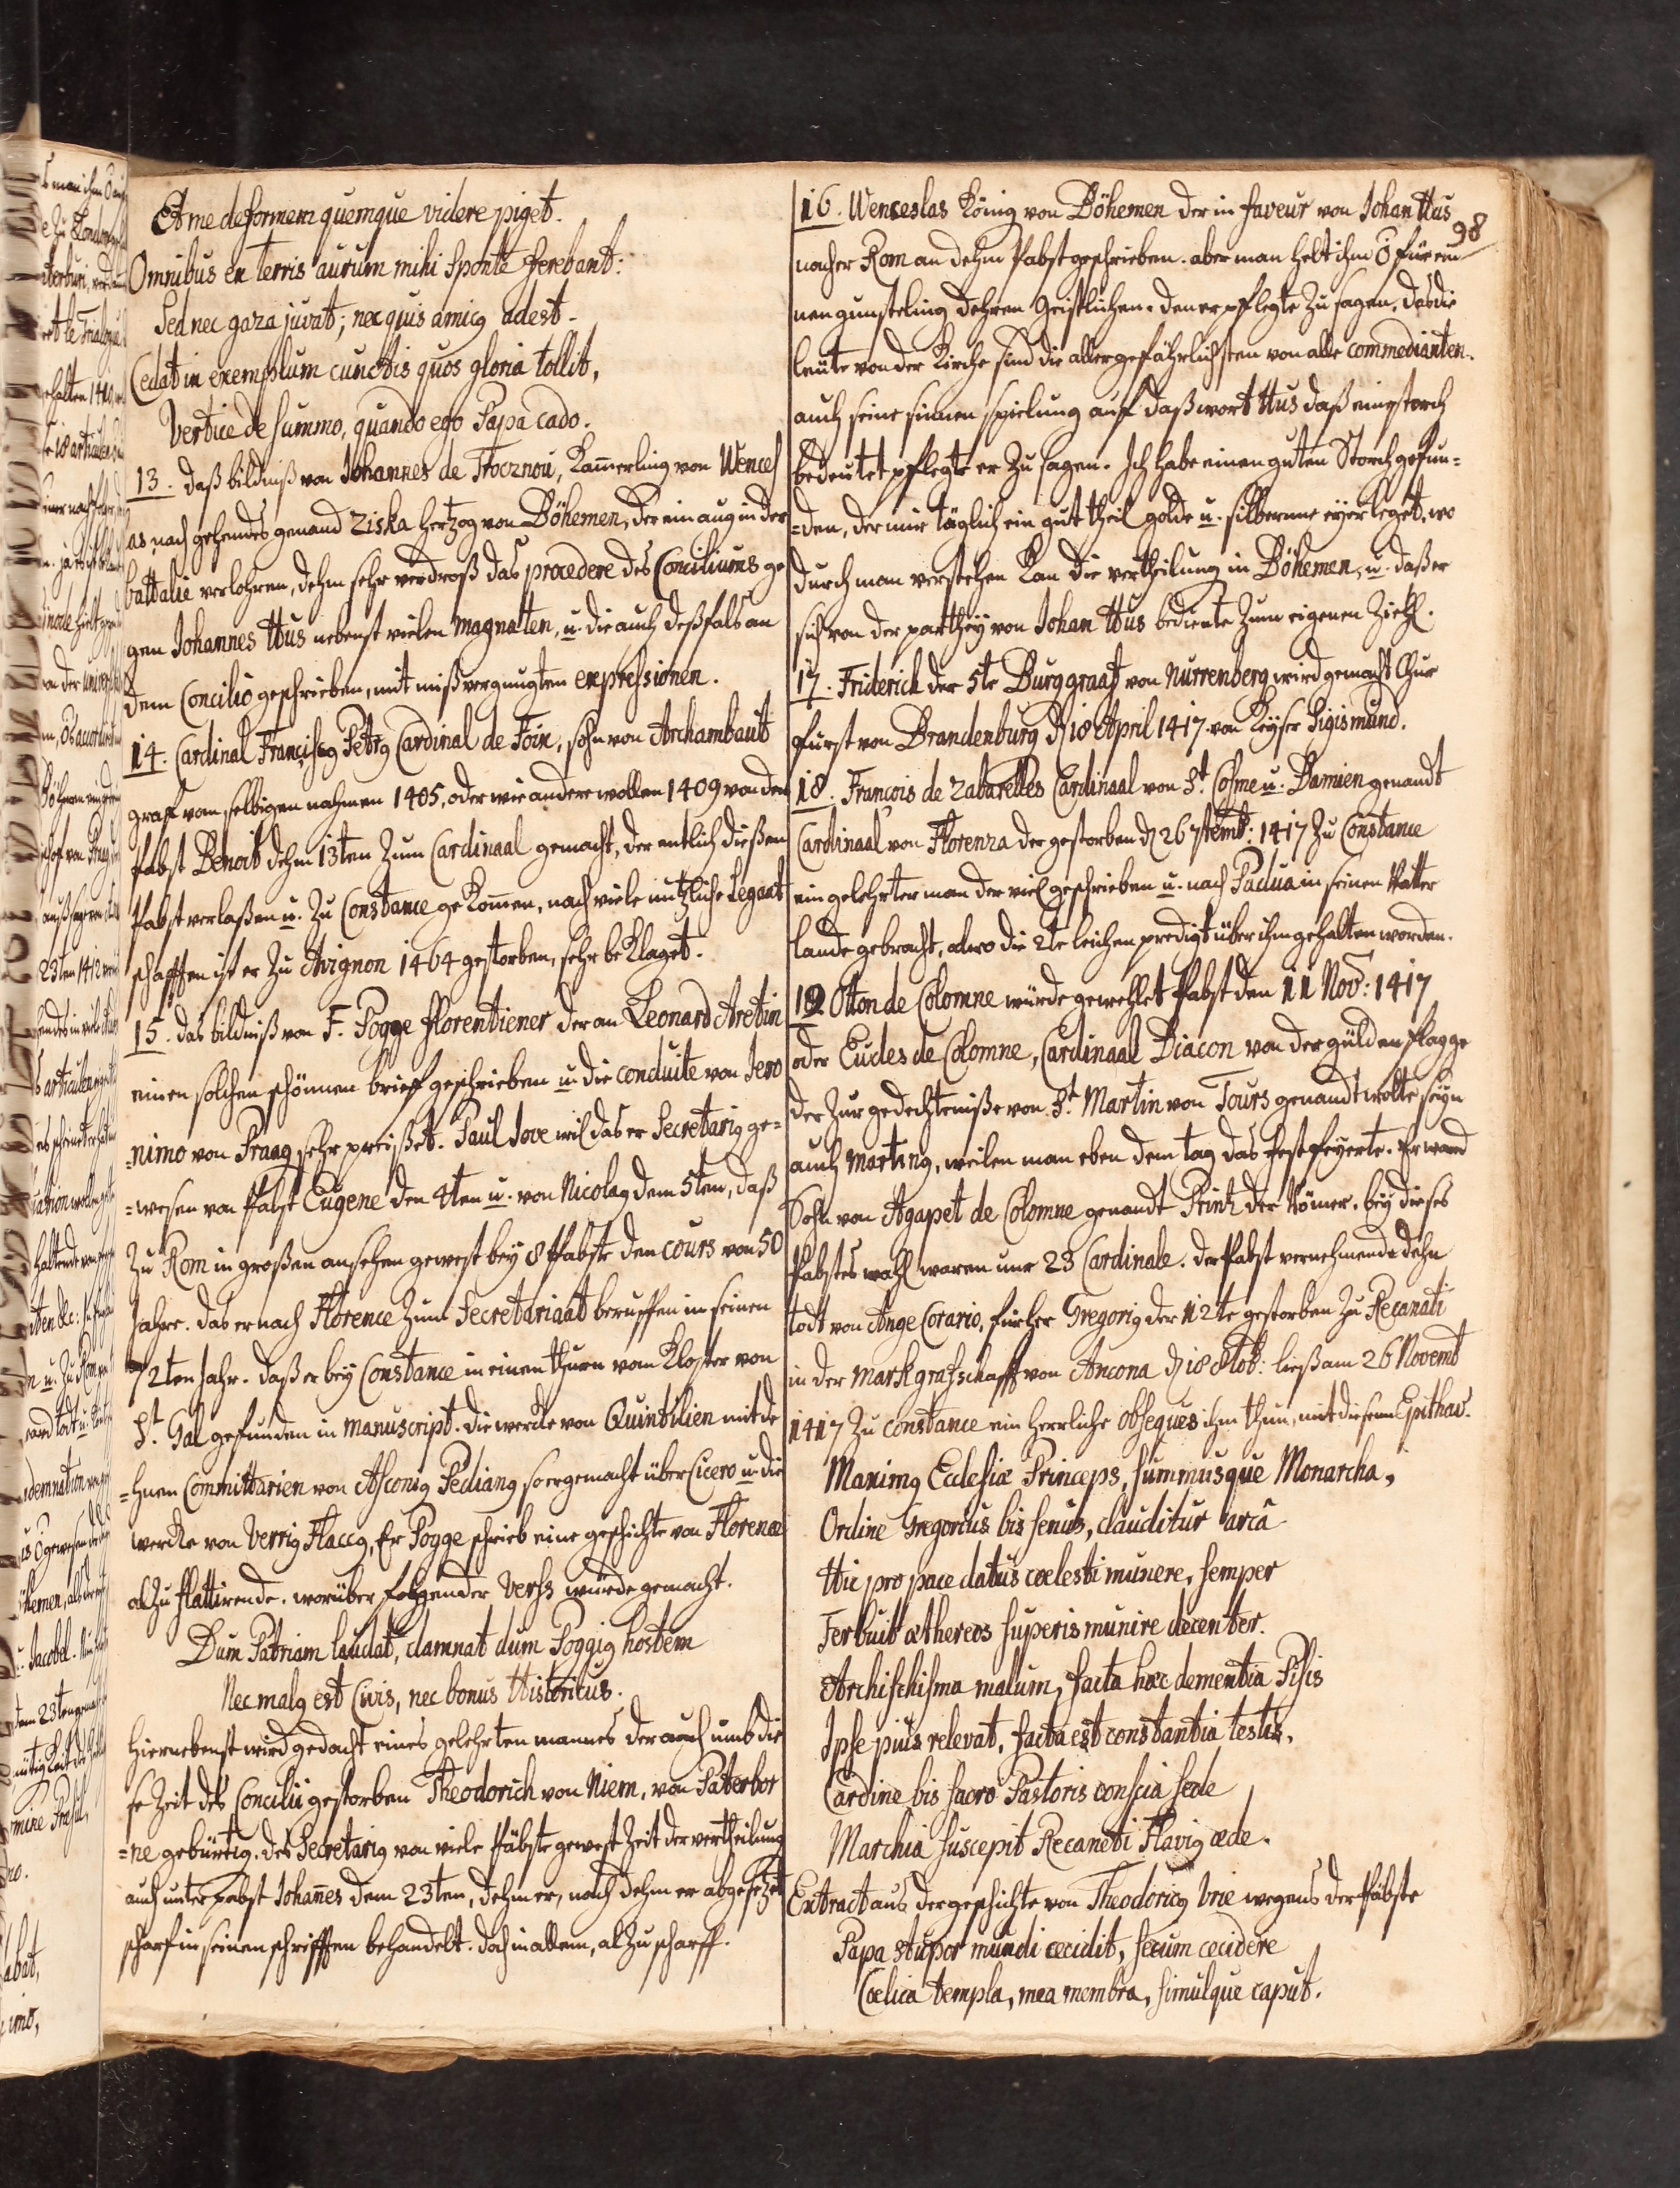 Et me deformem quemque videre piget.
Omnibus ex terris aurum mihi sponte ferebant:
Sed nec gaza juvat; nec quis amicg adest.
Cedat in exemplum cunctis quos gloria tollit,
Vertice de summo, quando ego Papa cado.
13. daß bildniß von Johannes de Trocznou, Kamerling von Wences
as, nach gehends genand Ziska Hertzog von Böhemen, der ein aug in der
battalie verlohren, dehm sehr verdroß das procedere des Conciliums ge
gen Johannes Hus nebenst vielen Magnatten, u. die auch deßfals an
dem Concilio geschrieben, mit mißvergnugten expressionen.
14. Cardinal Franciscg Petrg Cardinal de Foix, sohn von Archambaut
graf vom selbigen nahmen 1405, oder wie andere wollen 1409 von den
Pabst Benoit dehm 13ten zum Cardinaal gemacht, der entlich dießen
Pabst verlaßen u. zu Constance gekomen, nach viele nutzliche Legaat
schafften ist er zu Avignon 1464 gestorben, sehr beklaget.
15. das bildniß von F. Pogge florentiener der an Leonard Aretin
einen solchen schönnen brieff geschrieben u. die conduite von Jero
=nimo von Praag sehr preißet. Paul Jove wil das er Secretarig ge=
=wesen von Pabst Eugene den 4ten u. von Nicolag dem 5ten, daß
zu Rom in großen ansehen gewest bey 8 Pabste den cours von 50
Jahre. das er nach Florence zum Secretariaat beruffen in seinen
72ten Jahr. daß er bey Constance in einen thurn vom Kloster von
St. Gal gefunden in manuscript. die wercke von Quintilien mit de
=hnen Committarien von Asconig Pediang so er gemacht über Cicero u. die
wercke von Verrig Flaccg, Er Pogge schrieb eine geschichte von Florence
al zu flattirende. worüber folgender Verß wurde gemacht.
Dum Patriam laudat, damnat dum Poggig hostem
Nec malg est Civis, nec bonus Historicus.
Hiernebenst wird gedacht eines gelehrten mannes der auch umb die
se Zeit des Concilii gestorben Theodorich von Niem, von Paterbor
=ne gebürtig. des Secretarig von viele Päbste gewest Zeit der vertheilung
auch unter Pabst Johanes dem 23ten, dehm er, nach dehm er abgesetzet
scharf in seinen schrifften behandelt. doch in allem, al zu scharff.
98
16. Wenceslas König von Böhemen der in faveur von Johan Hus
nacher Rom an dehm Pabst geschrieben. aber man helt ihm für ein
nen gunsteling dehren Geistlichen. den er pflegte zu sagen, das die
leute von der Kirche sind die aller gefährlichsten von alle commedianten.
auch seine sinnen spielung auf daß wort Hus daß ein storch
bedeutet pflegte er zu sagen. Ich habe einen guten Storch gefun=
=den, der mir täglich ein gut theil golde u. silberne eyer leget, wo
durch man verstehen kan die vertheilung in Böhemen, u. daß er
sich von der parthey von Johan Hus bediente zum eigenen Ziehl.
17. Friderich der 5te Burggraaf von Nurrenberg wird gemacht Chur
furst von Brandenburg d 18 April 1417 von Keyser Sigismund.
18. Francois de Zabarelles Cardinaal von St. Cosme u. Damien genandt
Cardinaal von Florenza der gestorben d 26 7temb: 1417 zu Constance
ein gelehrter man der viel geschrieben u. nach Padua in seinen Vatter
lande gebracht, alwo die 2te leichen predigt über ihm gehalten worden.
19 Otton de Colomne würde gewehlet Pabst den 11 Nov: 1417
oder Eudes de Colomne, Cardinaal Diacon von der gülden flagge
der zur gedechtniße von St. Martin von Tours genandt wolte seyn
auch Marting, weilen man eben dem tag das fest feyerte. Er ward
Sohn von Agapet de Colomne genandt Printz der Römer. bey dieses
Pabstes wahl waren nur 23 Cardinale. der Pabst vernehmende dehn
todt von Ange Corario, fürher Gregorig der 12te gestorben zu Recanati
in der Markgrafschafft von Ancona d 18 8tob: ließ am 26 Novemb
1417 zu Constance ein herrliche obseques ihm thun, mit diesem Epithav.
Maximg Ecclesiæ Princeps, summusque Monarcha,
Ordine Gregorius bis senus, clauditur arcâ
Hic pro pace datus coelesti munere, semper
Ferbuit æthereos superis munire decenter.
Archischisma malum, facta hæc dementia Pisis
Ipse pius relevat, facta est constantia testis.
Cardine bis sacro Pastoris conscia sede
Marchia suscepit Recaneti Flavig æde.
Extract aus der geschichte von Theodoricg Vrie wegens der Päbste
Papa stupor mundi cecidit, secum cecidere
Coelica templa, mea membra, simulque caput.